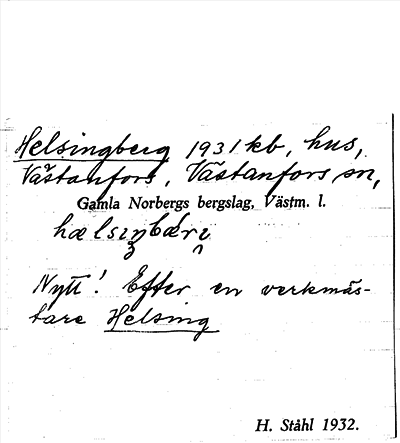 Helsingberg 1931 kb, hus,
Västanfors, Västanfors sn,
Gamla Norbergs bergslag, Västm. l.
Nytt! Efter en verkmäs-
tare Helsing
H. Ståhl 1932.